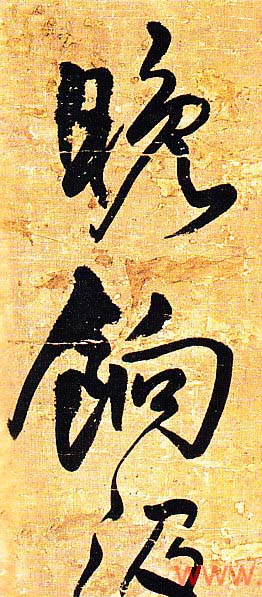 晚餉
www.